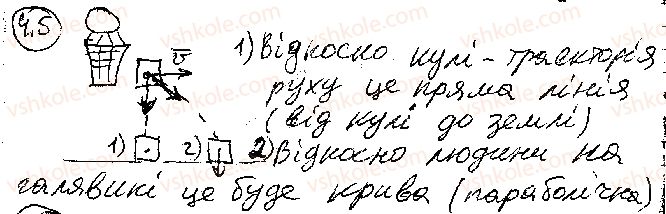 4.5
v̄
1) Відносно кулі - траєкторія
руху це пряма лінія
(від кулі до землі)
1) 2) 2) Відносно людини на
галявині це буде крива (параболічка)